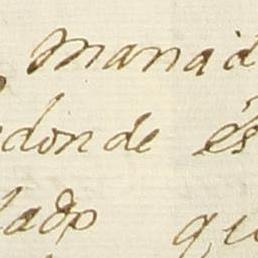 manad
donde és
lado qu